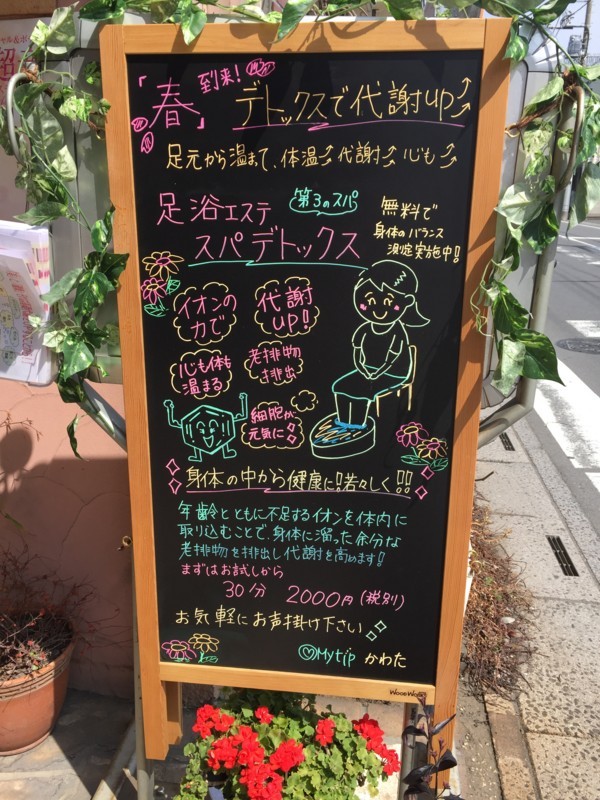 「春」到来!
デトックスで代謝up↑
足元から温まって、体温↑代謝↑心も↑
足浴エステ
第3のスパ
スパデトックス
無料で
身体のバランス
測定実施中!
イオンの
力で
代謝
UP!
心も体も
温まる
老排物
排出
細胞が
元気に
身体の中から健康に!若々しく!!
年齢とともに不足するイオンを体内に
取り込むことで、身体に溜った余分な
老排物を排出し代謝を高めます!
まずはお試しから
30分 2000円(税別)
お気軽にお声掛け下さい
Mytip かわた
WOODWORK